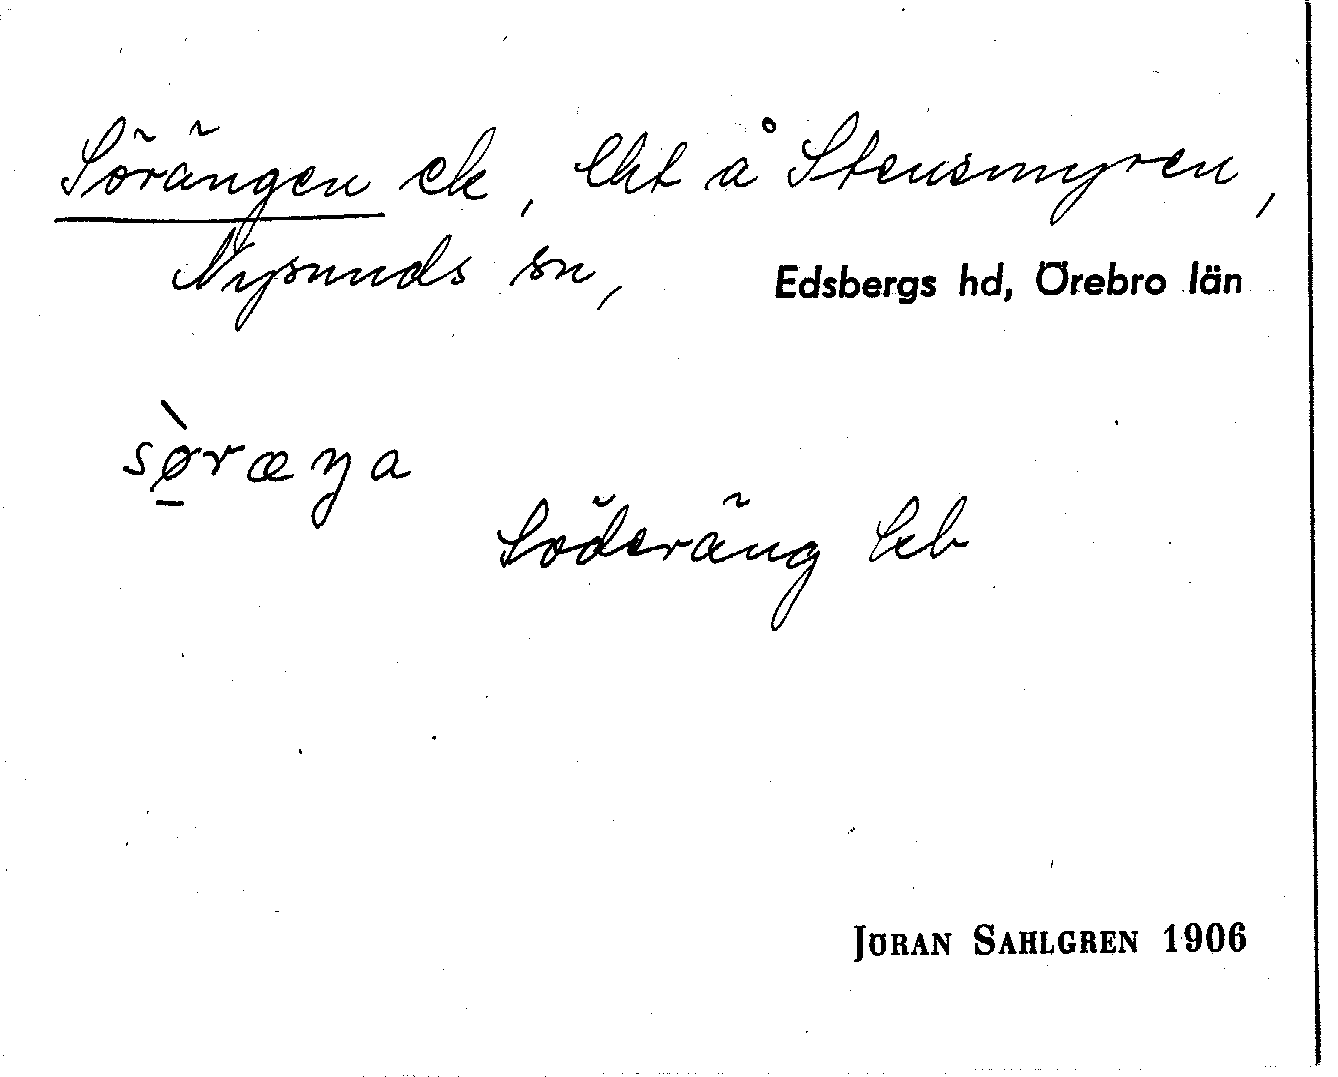 Sörängen ek, lht å Stensmyren,
Nysunds sn, Edsbergs hd, Örebro län
sø̀ræŋa
Söderäng
JÖRAN SAHLGREN 1906